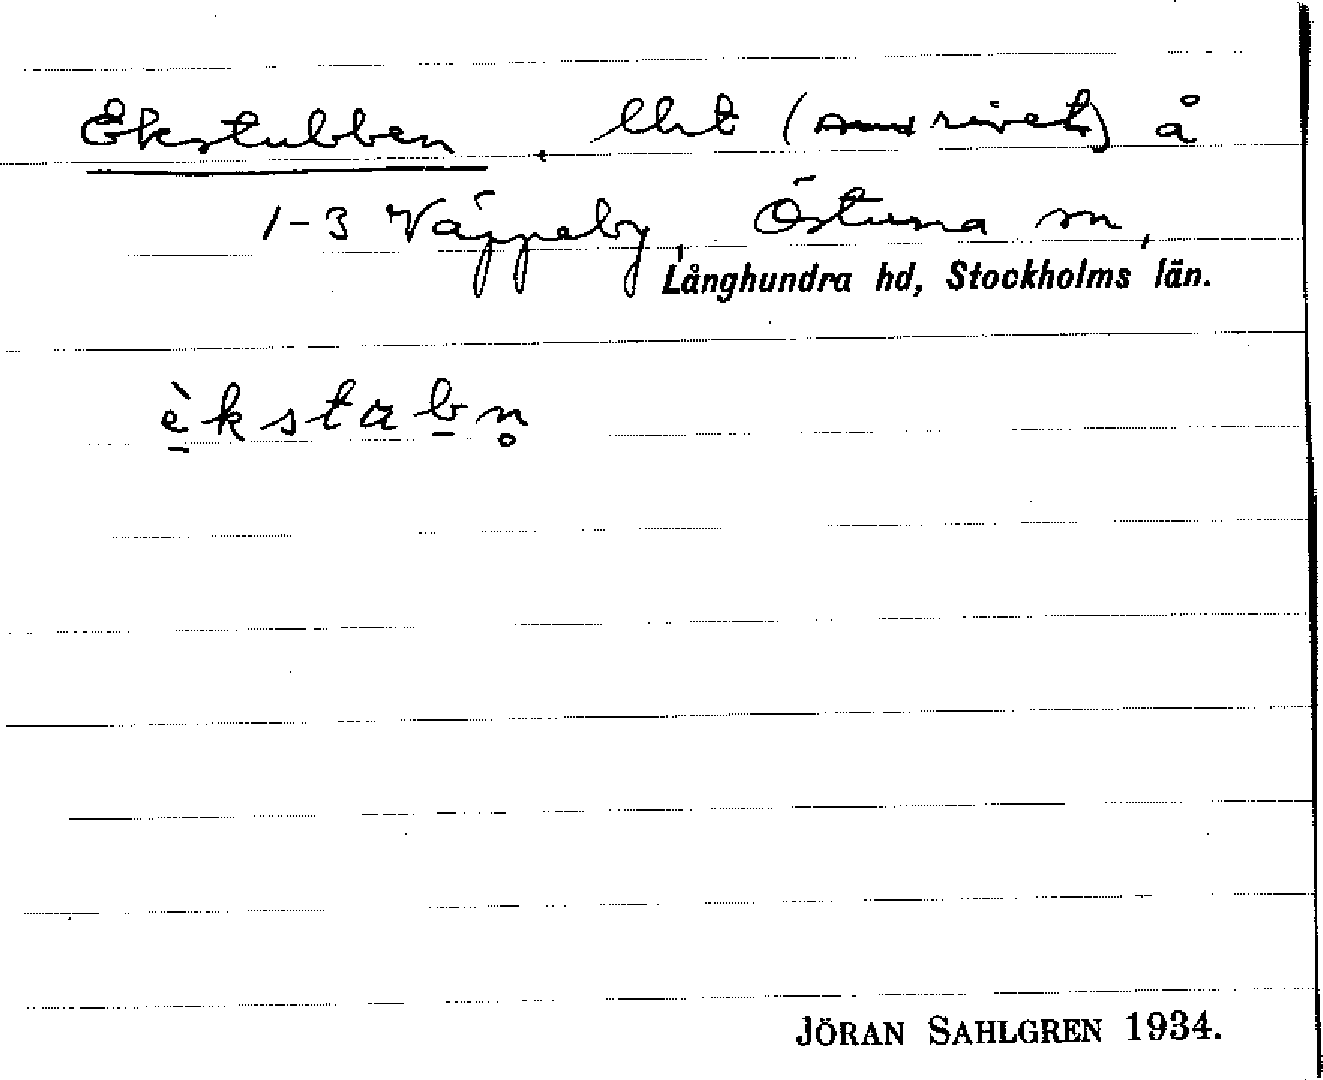 Ekstubben, lht (rivet) å
1-3 Väppeby, Östuna sn,
Långhundra hd, Stockholms län.
èkstabn̥
JÖRAN SAHLGREN 1934.